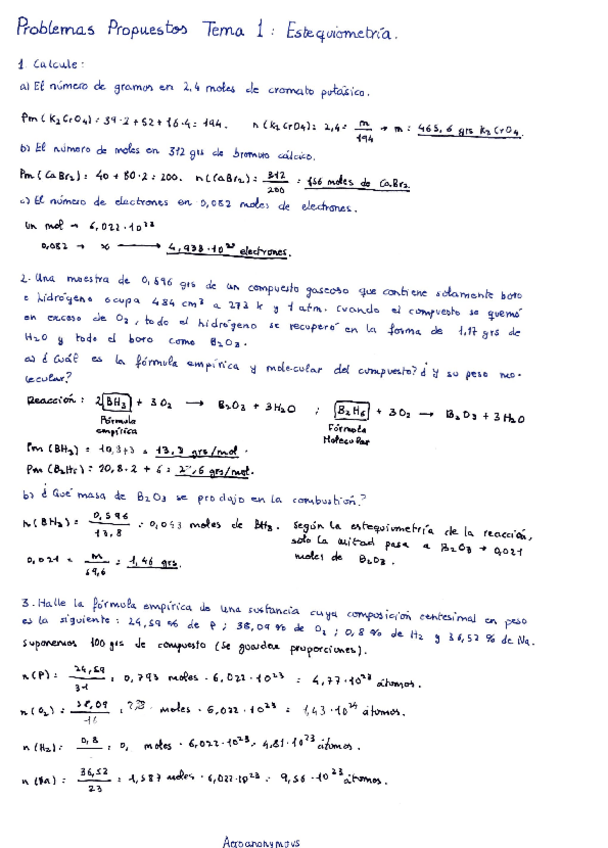 Problemas Propuestos Tema 1: Estequiometría.
1 Calcule:
a) El número de gramos en 2,4 moles de cromato potásico.
Pm (K2CrO4): 39·2+52+16·4 = 194. n(K2CrO4): 2,4 = m/194 → m: 465,6 grs K2CrO4.
b) El número de moles en 312 grs de bromuro cálcico.
Pm (CaBr2): 40+80·2 = 200. n(CaBr2): 312/200 = moles de CaBr2.
c) El número de electrones en 0,082 moles de electrones.
Un mol → 6,022·10
0,082 → x → electrones.
2. Una muestra de 0,596 grs de un compuesto gaseoso que contiene solamente boro
e hidrógeno ocupa 484 cm³ a 273 k y 1 atm. Cuando el compuesto se quemó
en exceso de O2, todo el hidrógeno se recuperó en la forma de 1,17 grs de
H2O y todo el boro como B2O3.
a) ¿Cuál es la fórmula empírica y molecular del compuesto? ¿y su peso mo-
lecular?
Reacción: 2 BH3 + 3O2 → B2O3 + 3H2O ; B2H6 + 3O2 → B2O3 + 3H2O
Fórmula empírica Fórmula Molecular
Pm (BH3) = 10,8+3 = 13,8 grs/mol.
Pm (B2H6): 10,8·2 + 6 = grs/mol.
b) ¿Qué masa de B2O3 se produjo en la combustión?
n(BH3) = 0,596/13,8 = 0,043 moles de BH3. Según la estequiometría de la reacción,
solo la mitad pasa a B2O3 → 0,021
moles de B2O3.
0,021 = m/69,6 = 1,46 grs.
3. Halle la fórmula empírica de una sustancia cuya composición centesimal en peso
es la siguiente: 24,59 % de P; 38,09 % de O2; 0,8 % de H2 y 36,52 % de Na.
Suponemos 100 grs de compuesto (se guardan proporciones).
n(P): 24,59/31 = 0,793 moles · 6,022·10^23 = 4,77·10^23 átomos.
n(O2) = 38,09/16 = moles · 6,022·10^23 = 1,43·10^24 átomos.
n(H2): 0,8 = moles · 6,022·10^23 = 4,81·10^23 átomos.
n(Na): 36,52/23 = 1,587 moles · 6,022·10^23 = 9,56·10^23 átomos.